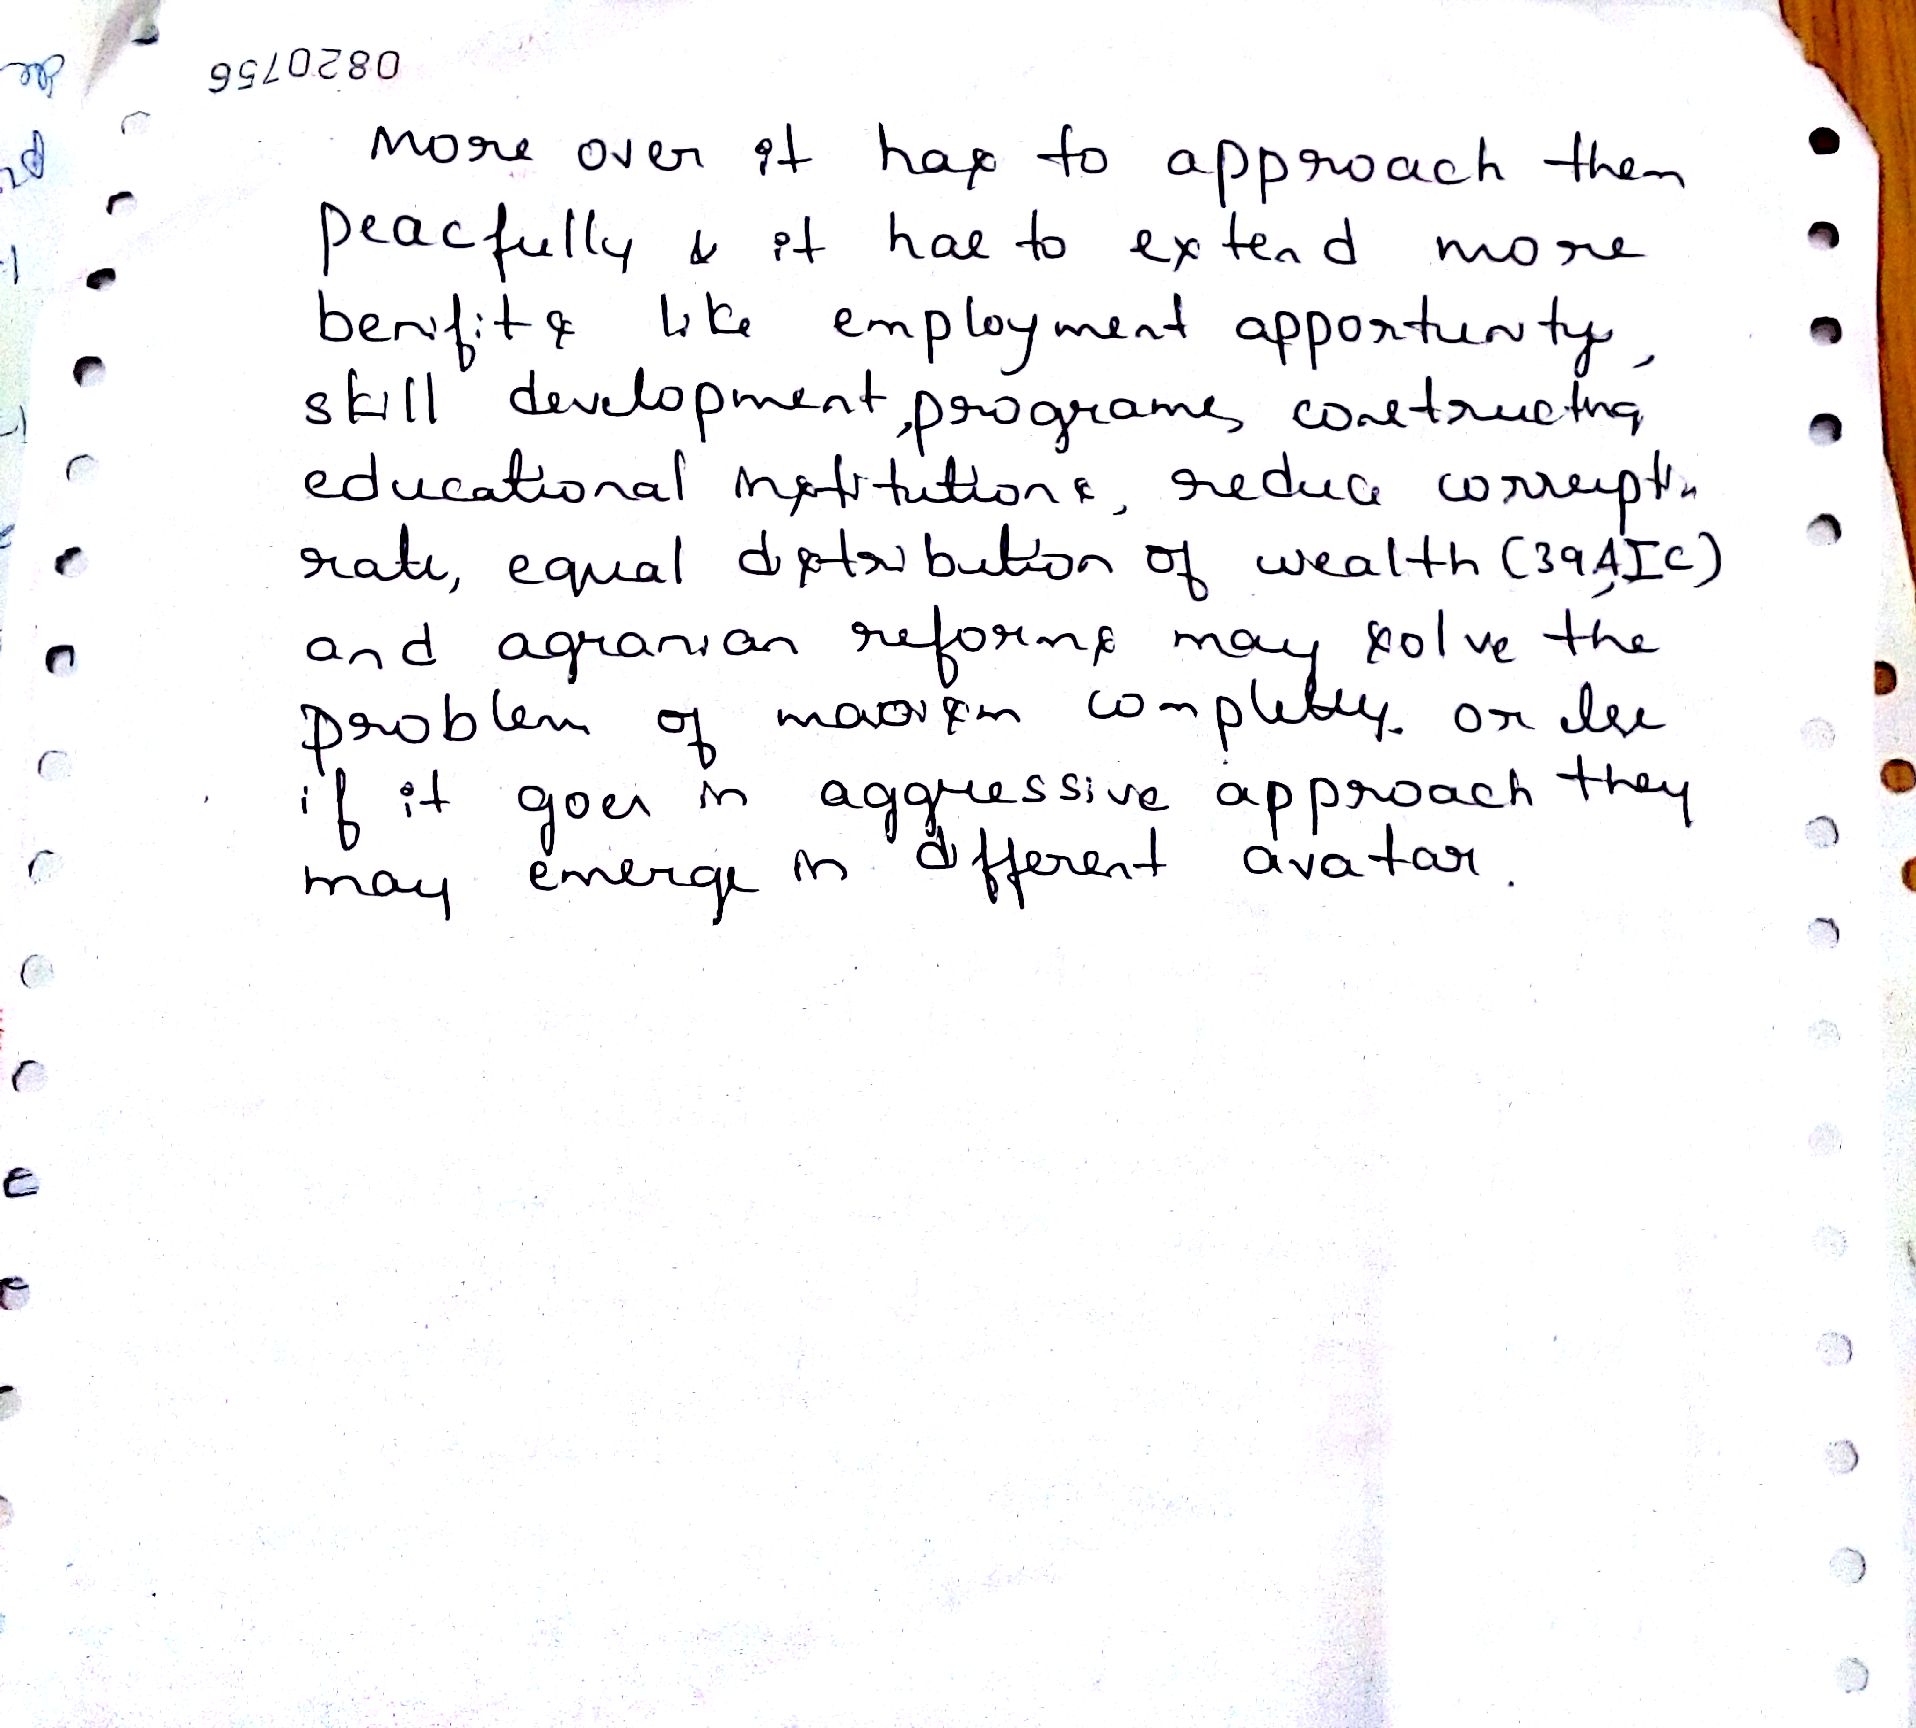 0820756
More over it has to approach them
peacfully & it has to extend more
benifits like employment apportunity,
skill development, programs, constructing
educational institutions, reduce corruption
rate, equal distribution of wealth (39A, IC)
and agrarian reforms may solve the
problem of maoism completely. or else
if it goes in aggressive approach they
may emerge in different avatar.